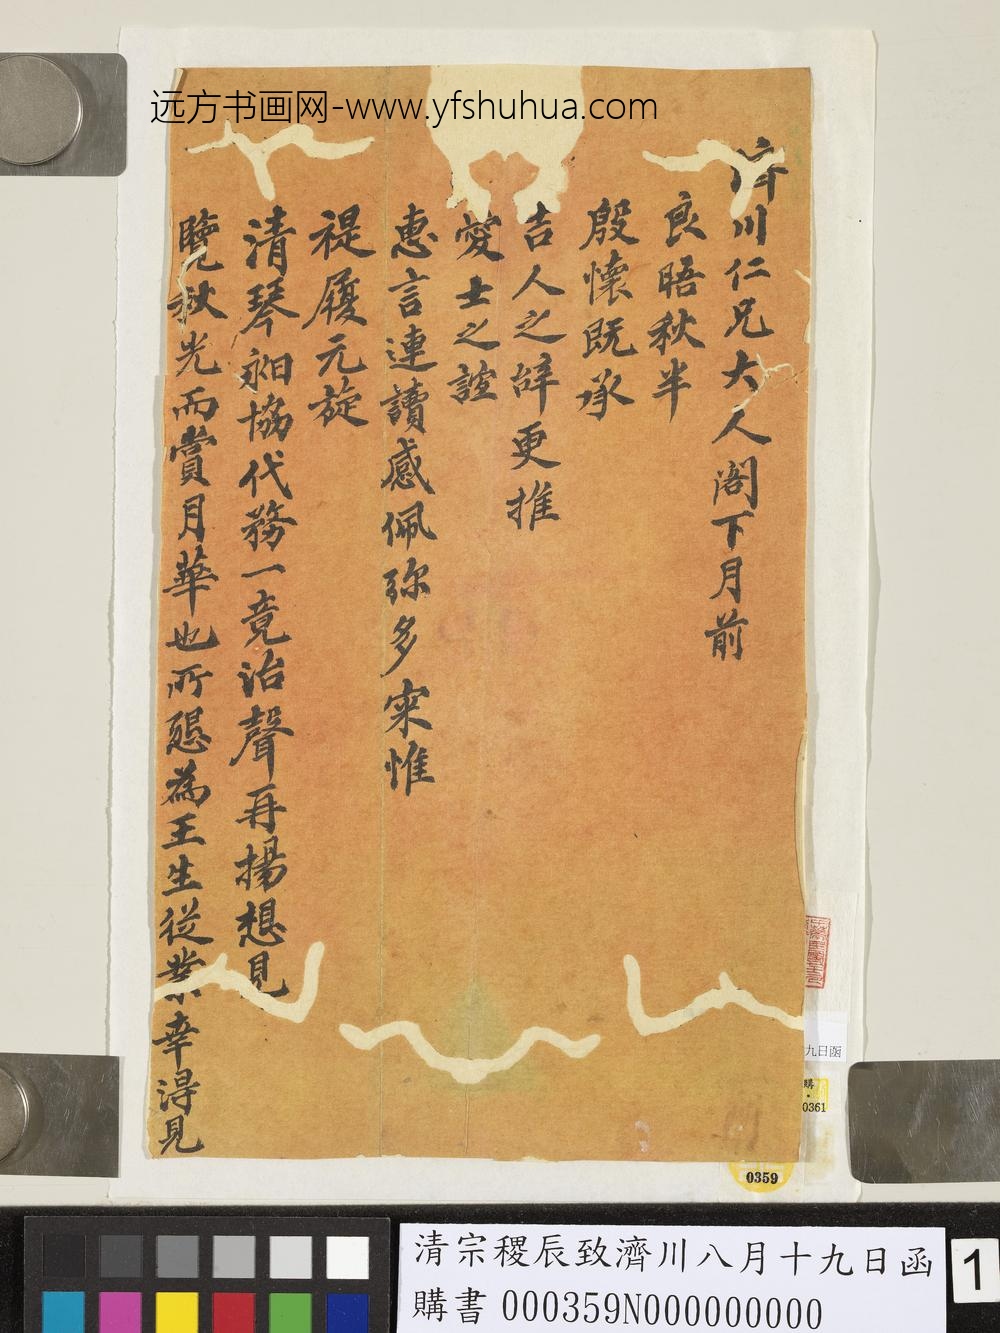 远方书画网-www.yfshuhua.com
濟川仁兄大人閣下月前
良晤秋半
殷懷既承
吉人之辭更推
愛士之誼
惠言連讀感佩弥多寀惟
禔履元旋
清琴昶協代務一竟治聲再揚想見
覽秋光而賞月華也所懇為王生從業幸得見
九日函
購
0361
0359
清宗稷辰致濟川八月十九日函
購書 000359N000000000
1